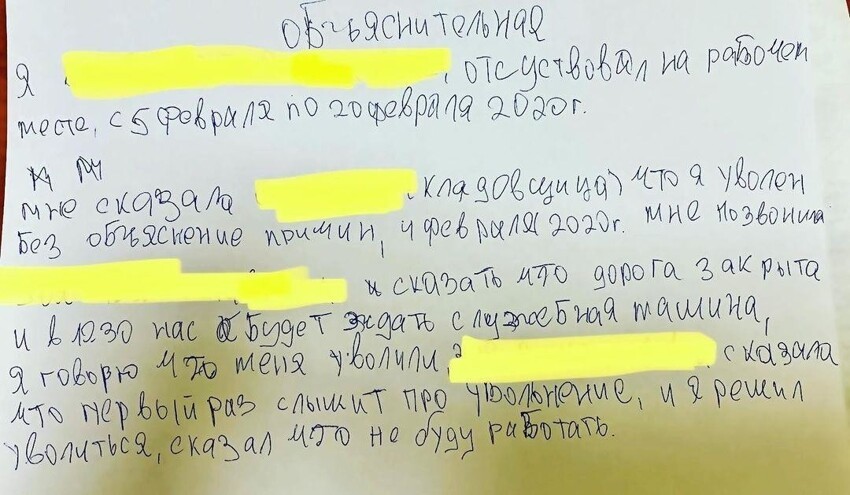 Объяснительная
Я отсуствовал на рабочем
месте, с 5 февраля по 20 февраля 2020г.
мне сказала кладовщица) что я уволен
без объяснение причин, 4 февраля 2020г. мне позвонила
и сказать что дорога закрыта
и в 1230 нас будет ждать служебная машина,
я говорю что меня уволили, сказала
что первый раз слышит про увольнение, и я решил
уволиться, сказал что не буду работать.